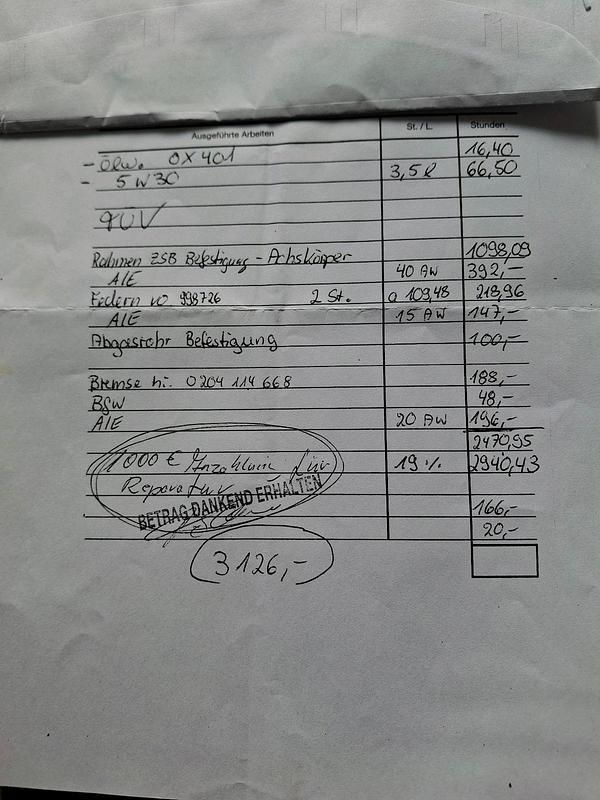 Ausgeführte Arbeiten St. / L. Stunden
- Ölw. OX 401 16,40
- 5W30 3,5 l 66,50
TÜV
Rahmen ZSB Befestigung - Achskörper 1098,09
A/E 40 AW 392,-
Federn vo 998726 2 St. a 109,48 218,96
A/E 15 AW 147,-
Abgasrohr Befestigung 100,-
Bremse hi. 0204 114 668 188,-
BFW 48,-
A/E 20 AW 196,-
2470,95
1000 € Anzahlung für 19 % 2940,43
Reparatur
BETRAG DANKEND ERHALTEN 166,-
20,-
3126,-